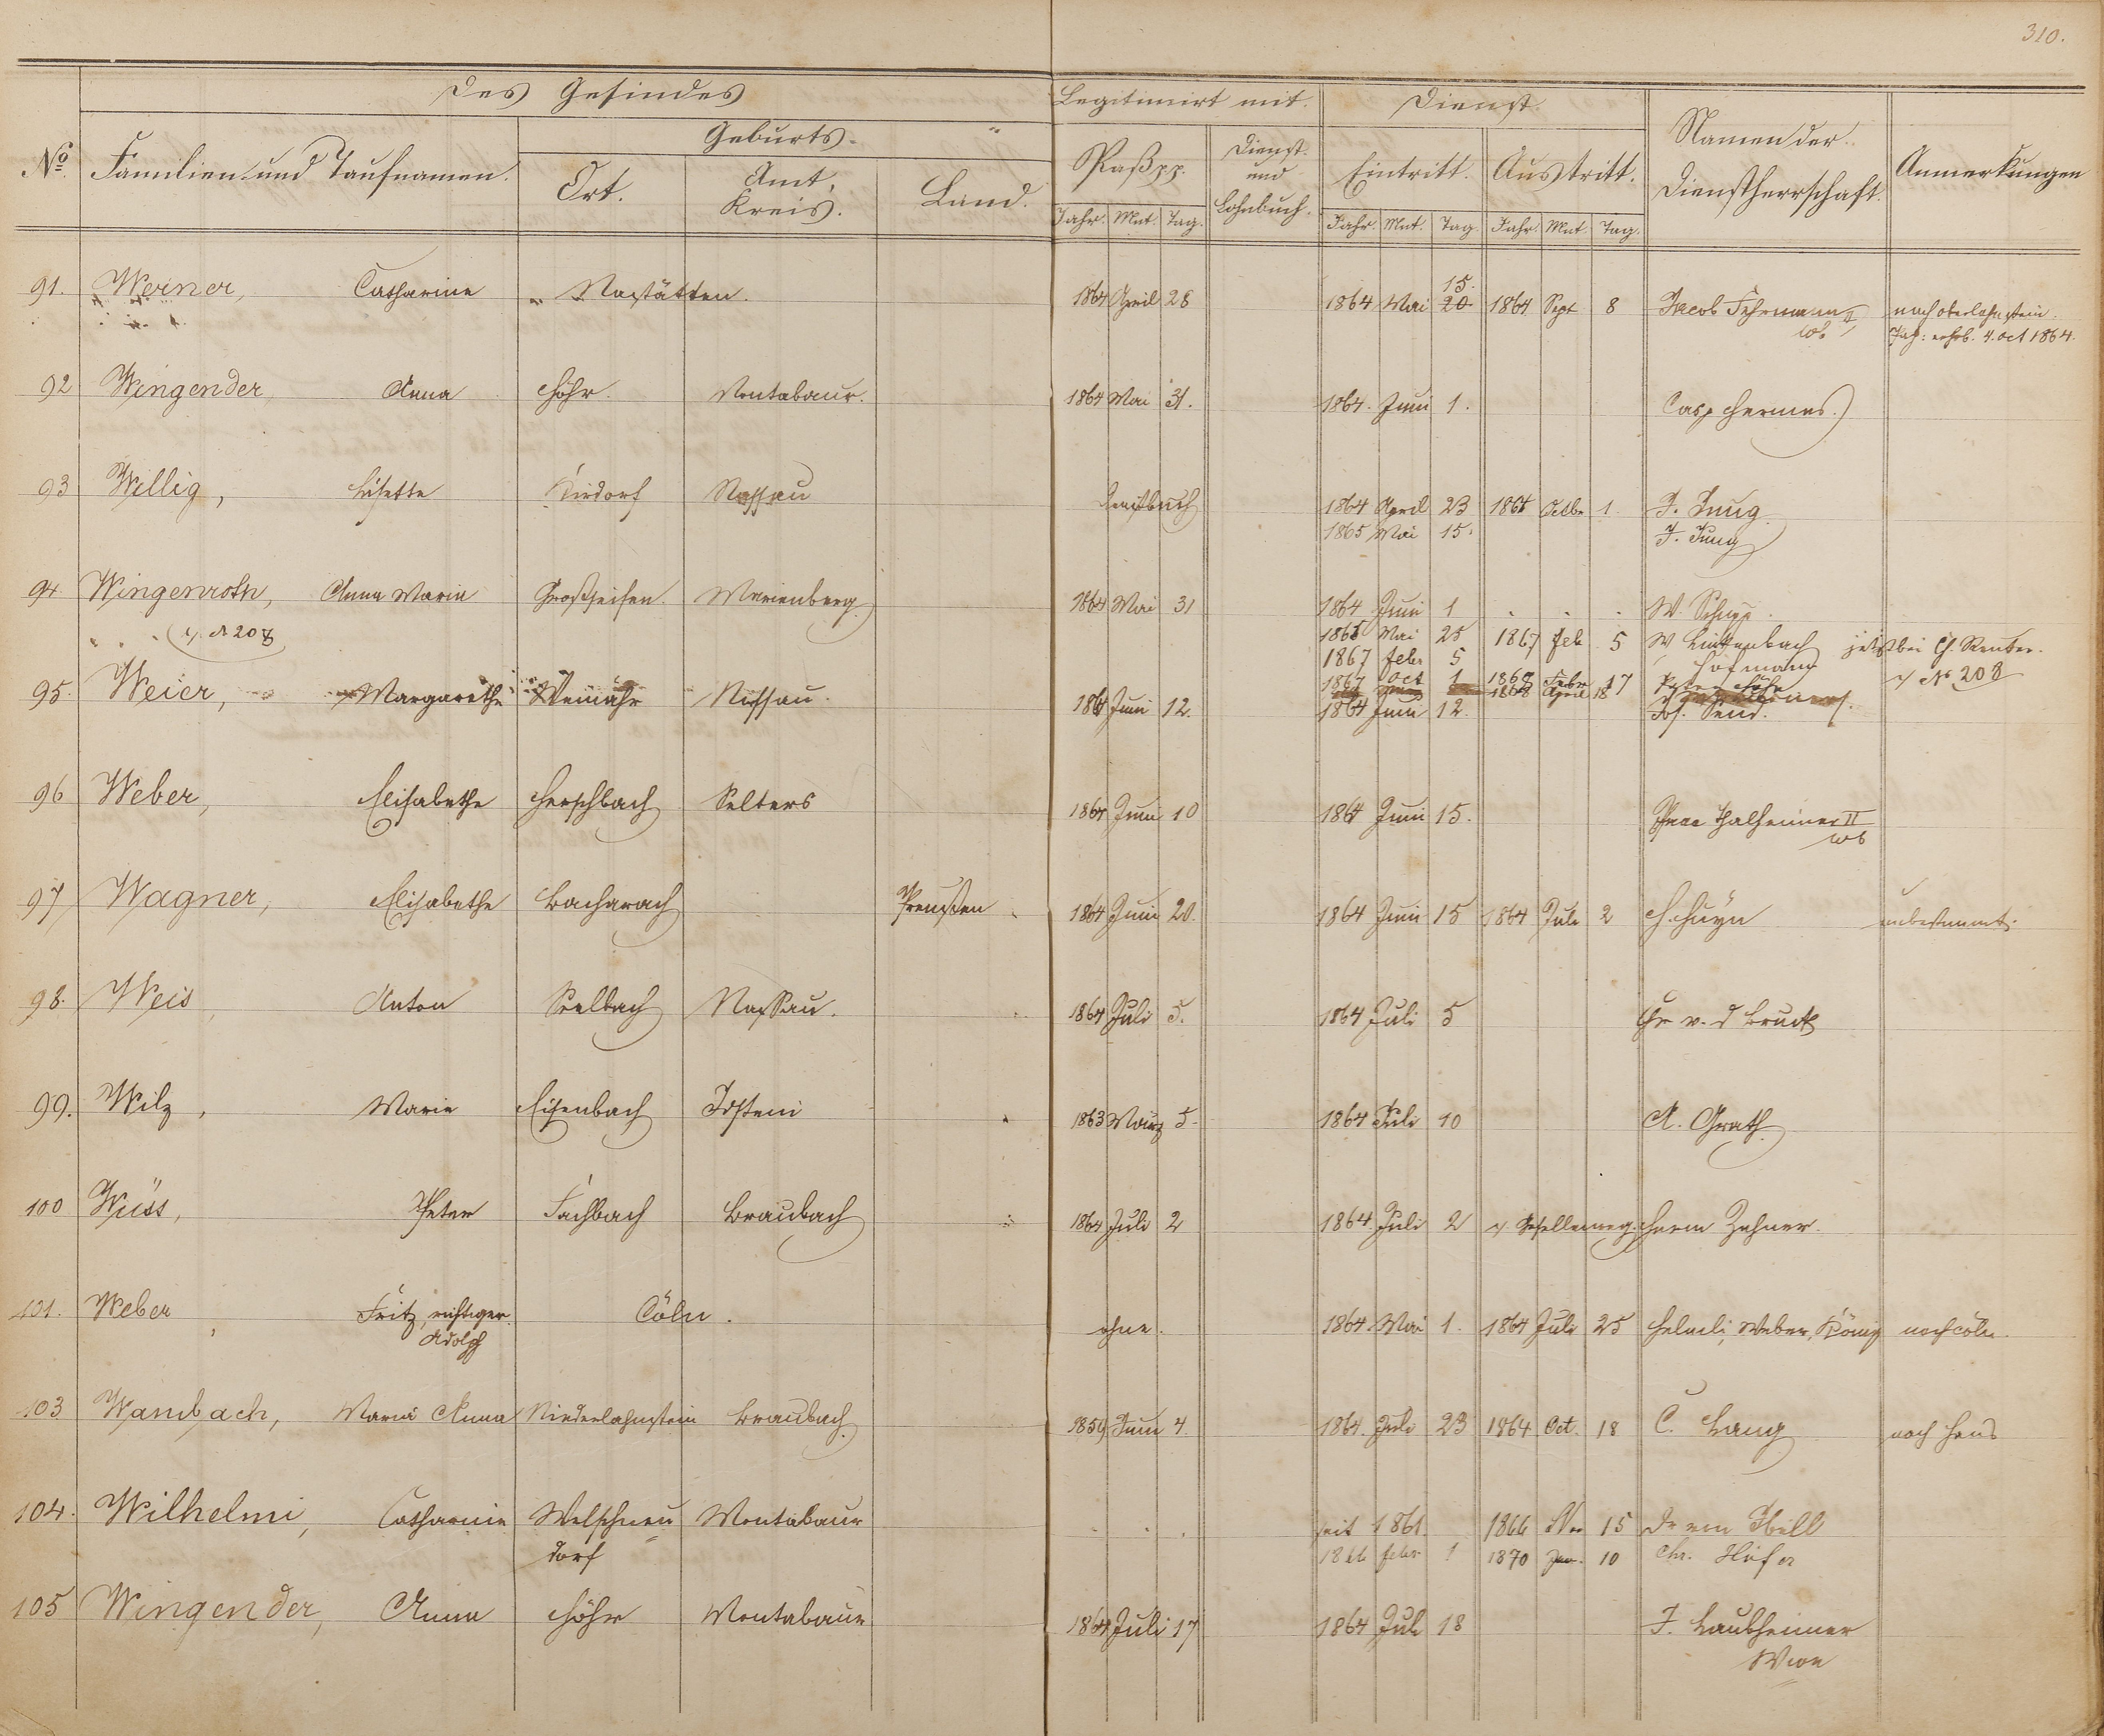 310.
Des Gesindes
Legitimirt mit.
Dienst.
Namen der Dienstherrschaft.
Anmerkungen
No.
Familien und Taufnamen.
Geburts-
Ort.
Amt, Kreis.
Land.
Paß pp.
Dienst- und Lohnbuch.
Eintritt.
Austritt.
Jahr. Mnt. Tag.
Jahr. Mnt. Tag. Jahr. Mnt. Tag.
91. Werner, Catharine Nastätten. 1864 April 28 1864 Mai 15. 20 1864 Sept 8 Jacob Fehrmann II nach Oberlahnstein.
4. Oct 1864.
92 Wingender Anna Höhr. Montabaur. 1864 Mai 31. 1864. Juni 1. Casp Hermes.
93 Willig, Lisette Kirdorf Nassau Dienstbuch 1864 April 23 1864 Octbr 1. J. Jung
1865 Mai 15. J. Jung
94. Wingenroth, Anna Maria Großseifen. Marienberg. 1864 Mai 31 1864 Juni 1 W. Schupp.
No 208 1865 Mai 25 1867 Feb 5 W Lintenbach jetzt bei
1867 febr 5 Hofmann
1867 Oct 1 1868 Febr 17 No 208
95. Weier, Margarethe Weinähr Nassau. 1864 Juni 12. 1864 Juni 12. 1868 April 18 Jos. Send.
96 Weber, Elisabethe Herschbach Selters 1864 Juni 10 1864 Juni 15. Thalheimer II
97 Wagner, Elisabethe Bacharach Preußen 1864 Juni 20. 1864 Juni 15 1864 Juli 2 H. Huyn unbestimmt.
98. Weis, Anton Seelbach Nassau. 1864 Juli 5. 1864 Juli 5 Hr v. d Bruck
99. Wilz, Marie Eisenbach Idstein 1863 März 5. 1864 Juli 10 A. Grath
100 Wüss, Peter Fachbach Braubach 1864 Juli 2 1864. Juli 2 Herm Zehner.
101. Weber, Fritz, richtiger Cöln. ohne. 1864. Mai 1. 1864 Juli 25 Weber, König nach Cöln.
Adolph
103 Wambach, Maria Anna Niederlahnstein Braubach. 1859 Juni 4. 1864. Juli 23 1864 Oct. 18 C. Lang nach Haus
104. Wilhelmi, Catharine Welschneu Montabaur seit 1861 1866 15 Dr von Ibell
dorf 1866 febr 1 1870 Jan. 10 Chr. Höfer
105 Wingender, Anna Höhr Montabaur 1864 Juli 17 1864 Juli 18 J. Laubheimer
Wwe